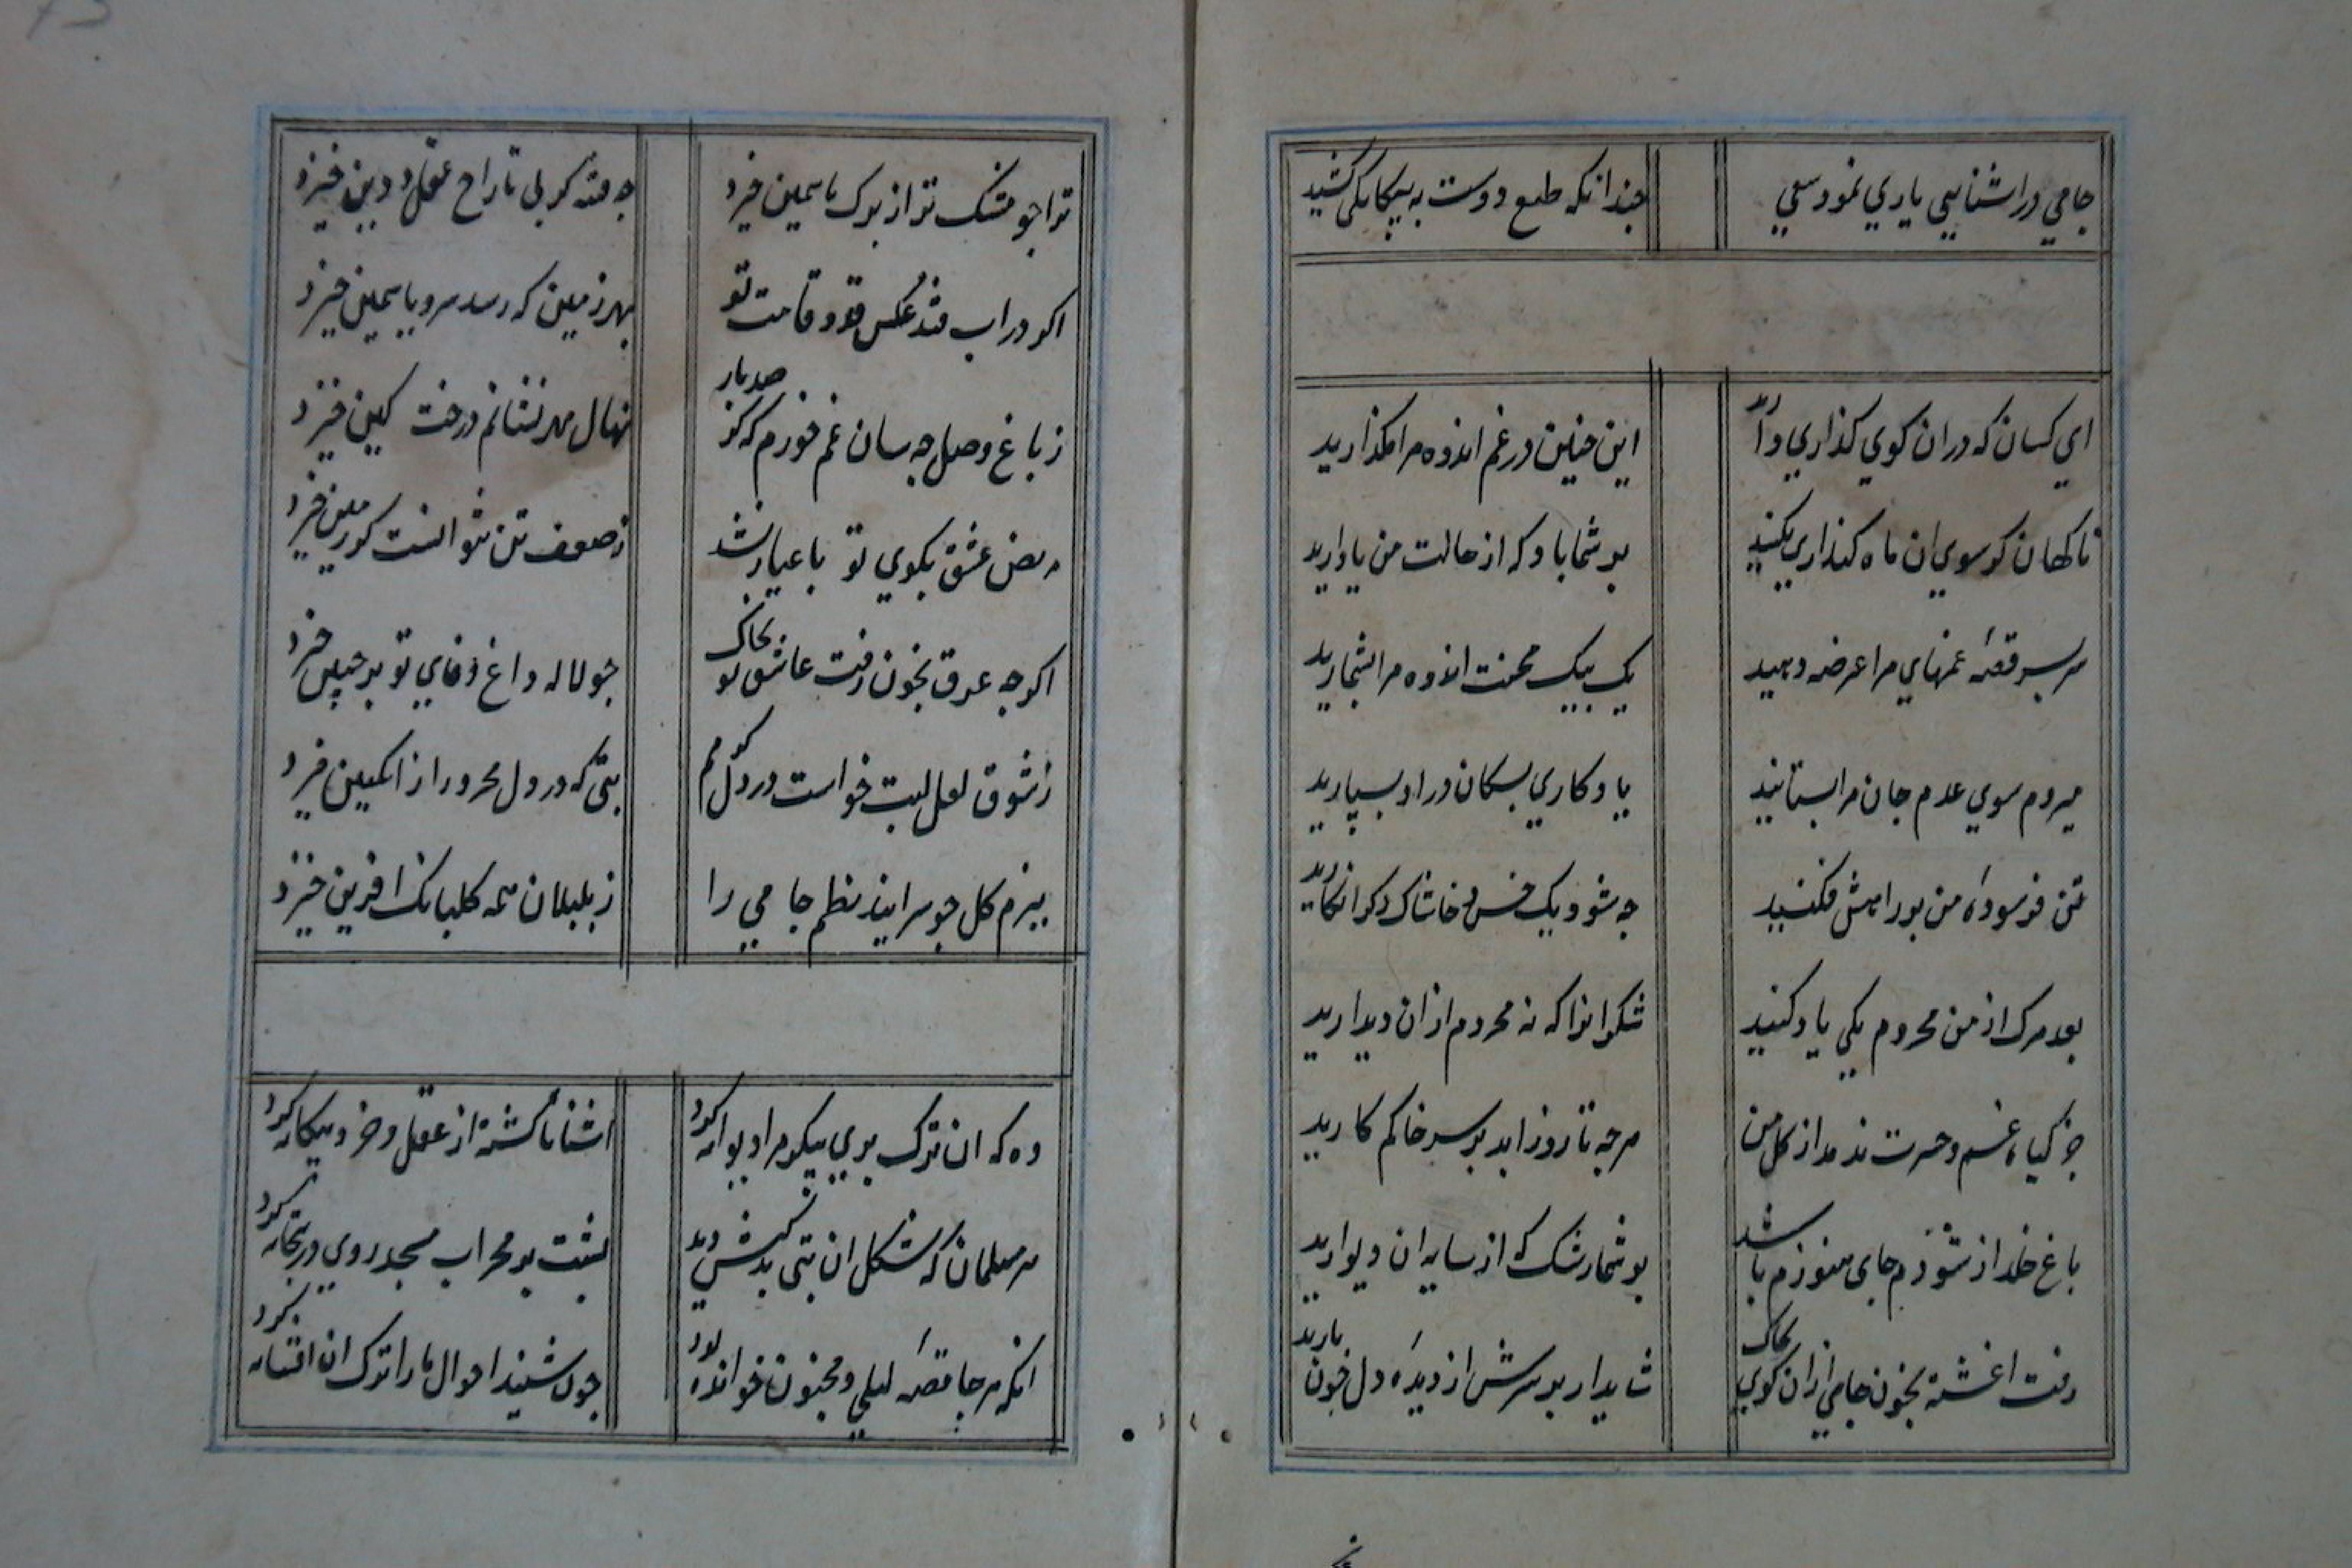 جامي در اشنايي ياري نمود سعي
چندانکه طبع دوست به بيکانکي کشيد
اي کسان که دران کوي کذاري داريد
اين چنين در غم اندوه مرا مکذاريد
ناکهان کر سوي ان ماه کذاري بکنيد
بر شما باد که از حالت من ياد اريد
سر بسر قصهٔ غمهاي مرا عرضه دهيد
يک بيک محنت اندوه مرا بشماريد
ميروم سوي عدم جان مرا بستانيد
يادکاري بسکان در او بسپاريد
تن فرسودهٔ من بر راهش فکنيد
چه شود يک خس و خاشاک دکر انکاريد
بعد مرک از من محروم يکي ياد کنيد
شکر انرا که نه محروم ازان ديداريد
جز کياه غم و حسرت ندمد از کل من
هرچه تا روز ابد بر سر خاکم کاريد
باغ خلد از شودم جاي هنوزم باشد
بر شما رشک که از سايه ان ديواريد
رفت اغشته بخون جامي ازان کوي بخاک
شايد ار بر سرش از ديدهٔ دل خون باريد
ترا چو مشک تر از برک ياسمين خيزد
چه فتنه کز پي تاراج عقل و دين خيزد
اکر در اب فتد عکس قد و قامت تو
بهر زمين که رسد سرو ياسمين خيزد
ز باغ وصل چه سان غم خورم که کر صدبار
نهال مهر نشانم درخت کين خيزد
مريض عشق بکوي تو با عيار نشد
ز ضعف تن نتوانست کز زمين خيزد
اکرچه غرق بخون رفت عاشق تو بخاک
چو لاله داغ وفاي تو بر جبين خيزد
ز شوق لعل لبت خواست در دلم کرم
تبي که در دل محرور از انکبين خيزد
ببزم کل چو سرايند نظم جامي را
ز بلبلان همه کلبانک افرين خيزد
وه که ان ترک پري پيکر مرا ديوانه کرد
اشنا ناکشته از عقل و خرد بيکانه کرد
هر مسلمان که شکل ان بتي بدکيش ديد
پشت بر محراب مسجد روي در بتخانه کرد
انکه هرجا قصهٔ ليلي و مجنون خوانده بود
چون شنيد احوال ما را ترک ان افسانه کرد